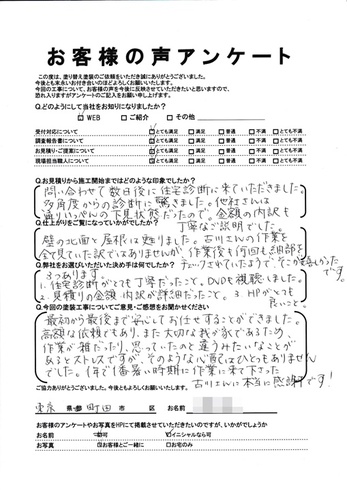 お客様の声アンケート
この度は、塗り替え塗装のご依頼をいただき誠にありがとうございました。
今後とも末永いお付き合いのほどよろしくお願いいたします。
今回の工事について、お客様の声を今後に反映させていただきたいと思いますので、
恐れ入りますがアンケートのご記入をお願い申し上げます。
Q.どのようにして当社をお知りになりましたか？
WEB ご紹介 その他
受付対応について とても満足 満足 普通 不満 とても不満
調査報告書について とても満足 満足 普通 不満 とても不満
お見積り・ご提案について とても満足 満足 普通 不満 とても不満
現場担当職人について とても満足 満足 普通 不満 とても不満
Q.お見積りから施工開始まではどのような印象でしたか？
問い合わせて数日後に住宅診断に来ていただきました。
多角度からの診断に驚きました。他社さんは
通りいっぺんの下見状態だったので。金額の内訳も
丁寧なご説明でした。
Q.仕上がりをご覧になっていかがでしたか？
壁の北面と屋根は甦りました。古川さんの作業を
全て見ていた訳ではありませんが、作業後も何回も細部を
チェックされていたようで、
です。
Q.弊社をお選びいただいた決め手は何でしたか？
3つあります。
1. 住宅診断がとても丁寧だったこと。DVDも視聴しました。
2. 見積りの金額・内訳が詳細だったこと。 3. HPがとても
良いこと。
Q.今回の塗装工事についてご意見・ご感想をお聞かせください
最初から最後まで安心してお任せすることができました。
高額な依頼でもあり、また大切な我が家であるため、
作業が雑だったり、思っていたのと違うみたいなことが
あるとストレスですが、そのような心配はひとつもありません
でした。1年で1番暑い時期に作業に来て下さった
古川さんに本当に感謝です!
ご協力ありがとうございました。今後ともよろしくお願いいたします。
東京 県・都 町田 市 区 お名前
お客様のアンケートやお写真をHPにて掲載させていただきたいのですが、いかがでしょうか
お名前 可 イニシャルなら可
お写真 お客様とご一緒に お宅のみ